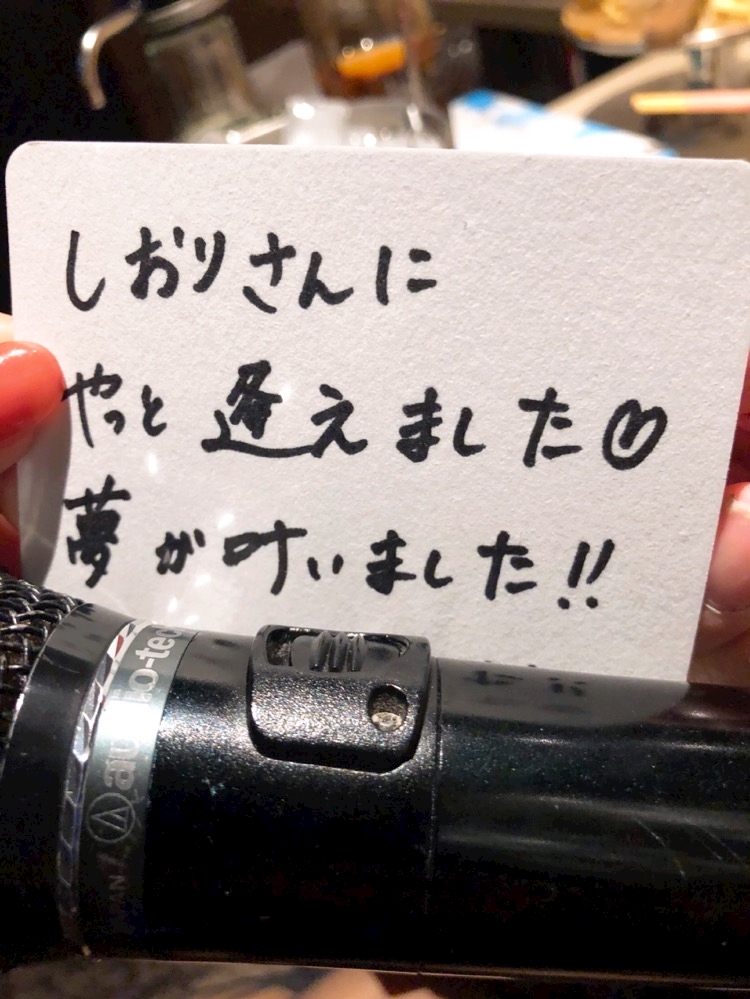 しおりさんに
やっと逢えました♡
夢が叶いました!!
audio-tec